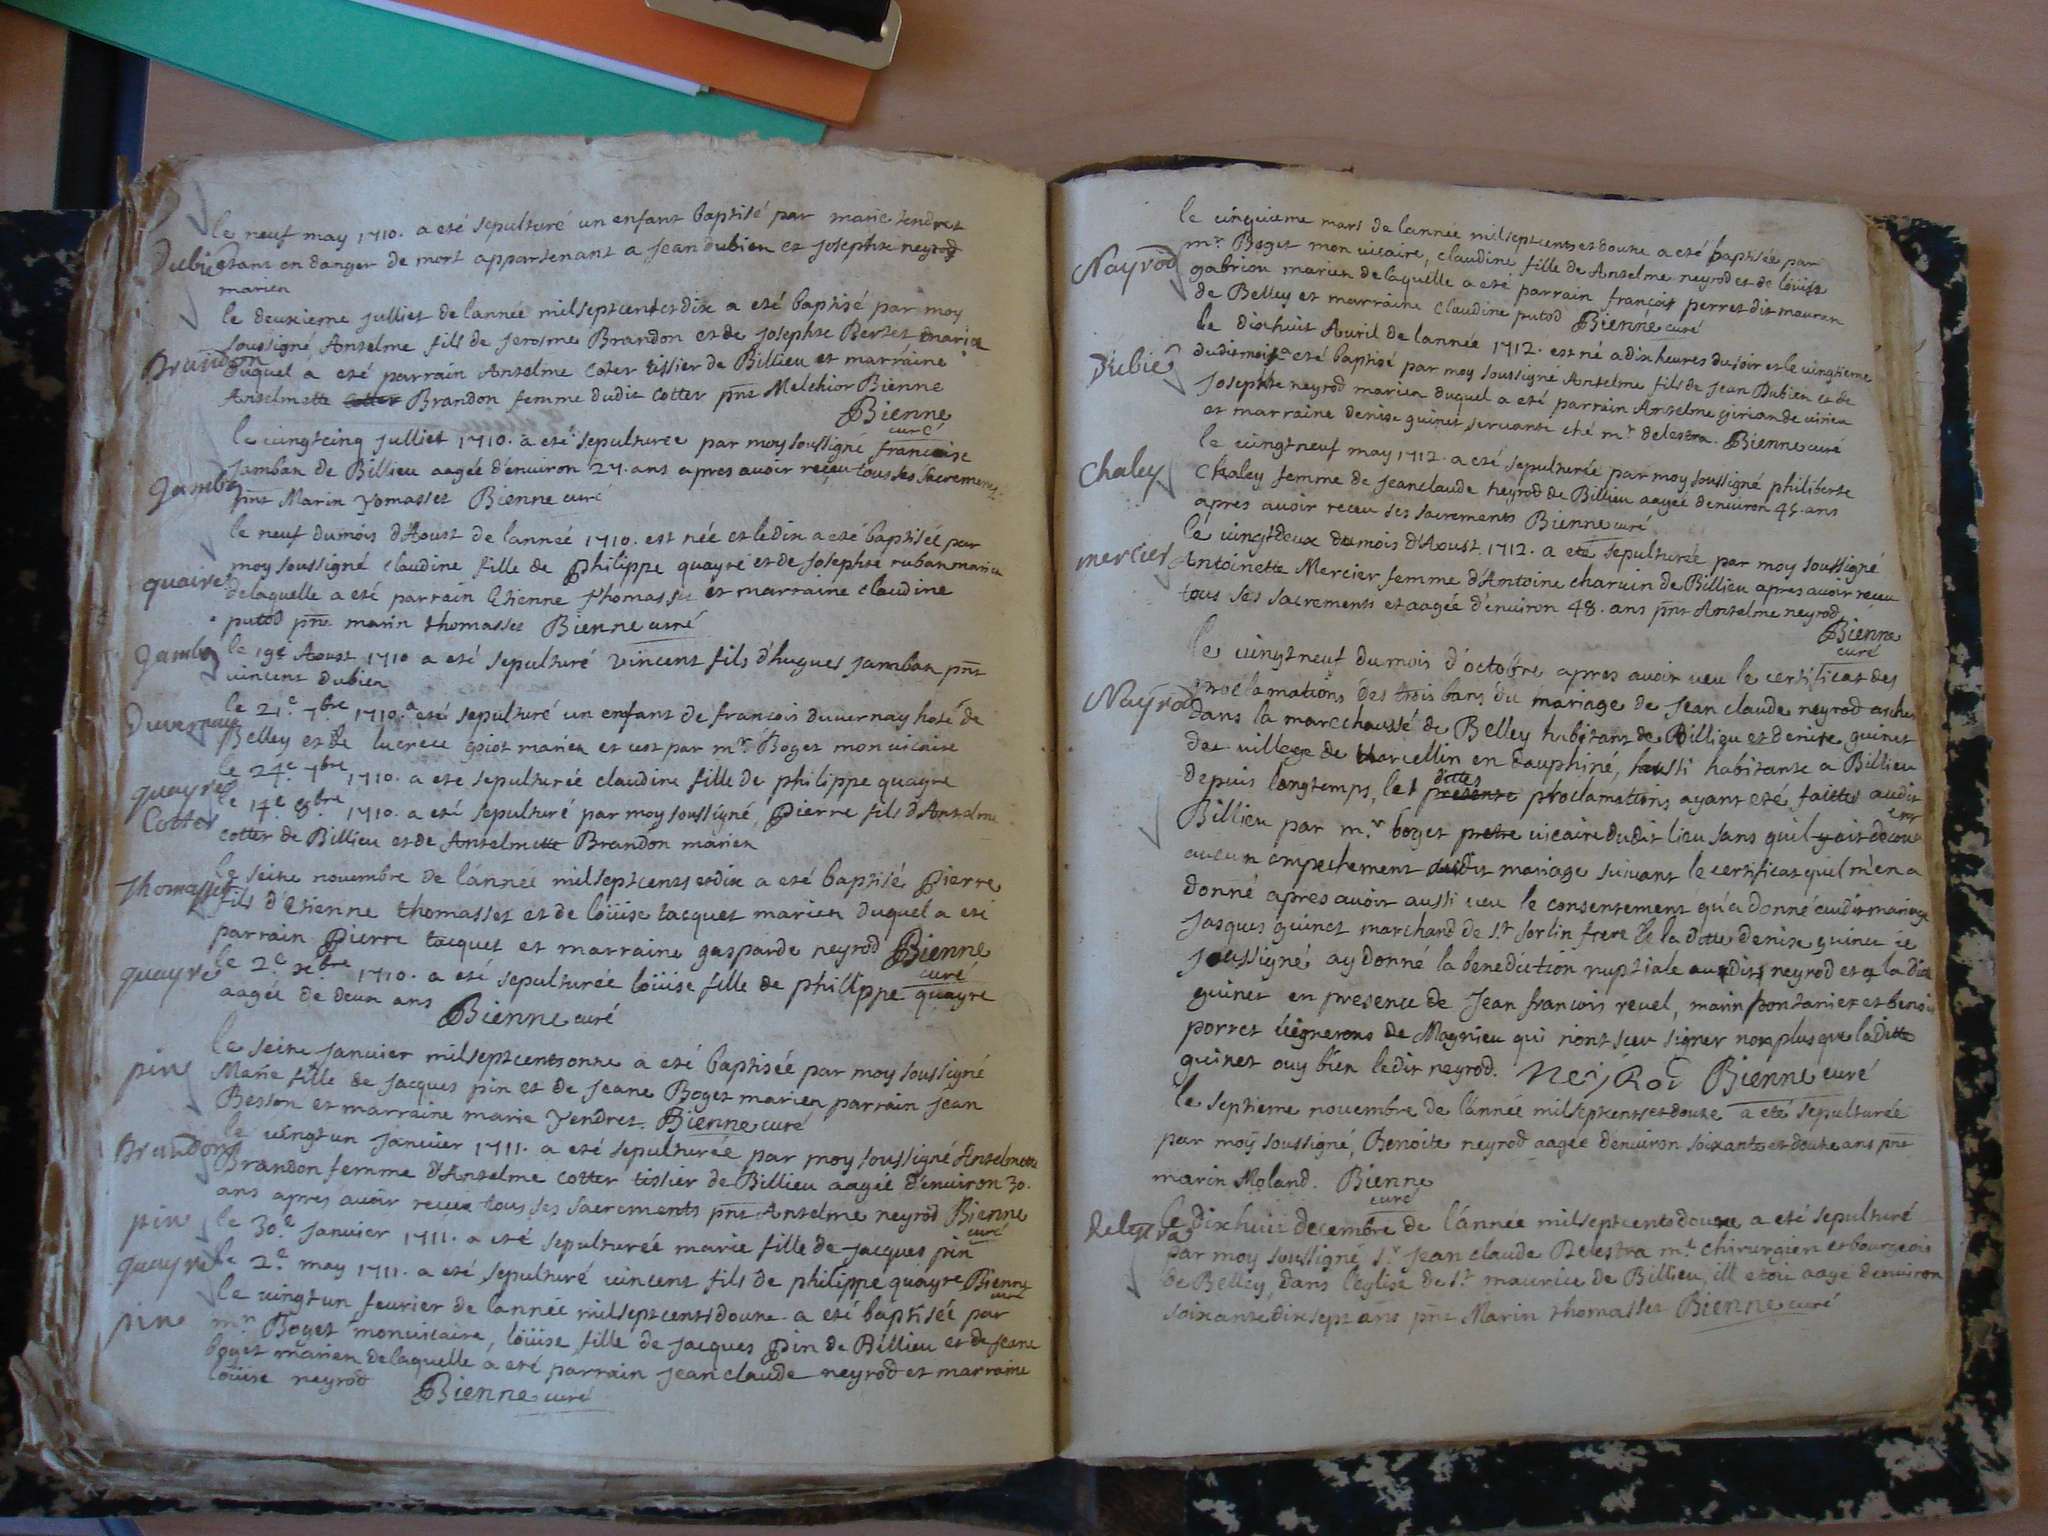 le neuf may 1710. a eté sepulturé un enfant baptisé par marie tendret
Dubien estant en danger de mort appartenant a jean dubien et josephte neyrod
mariea
le deuxieme julliet de lannée milseptcentetdix a eté baptisé par moy
soussigné Anselme fils de jerosme Brandon et de josephte Bertet mariea
Brandon duquel a eté parrain Anselme coter tissier de Billieu et marraine
Anselmette cotter Brandon femme dudit cotter pnt Melchior Bienne
Bienne
curé
le vingtcinq julliet 1710. a eté sepulturée par moy soussigné francoise
jamban de Billieu aagée d'environ 27. ans apres avoir reçeu tous ses sacrements
Jamban pnt Marin Yomasset Bienne curé
le neuf dumois d'Aoust de lannée 1710. est née et le dix a eté baptisée par
moy soussigné claudine fille de philippe quayré et de josephte ruban mariea
quaire delaquelle a eté parrain Etienne thomasset et marraine claudine
putod pnt marin thomasset Bienne curé
Jamban le 19e Aoust 1710 a eté sepulturé vincent fils d'hugues jamban pnt
vincent dubien
le 21e 7bre 1710. a eté sepulturé un enfant de francois duvernay hoste de
Duvernay Belley et de lucrece goiot mariea et cest par mr Boget mon vicaire
le 24e 7bre 1710. a ete sepulturée claudine fille de philippe quayre
quayre le 14e 8bre 1710. a eté sepulturé par moy soussigné, pierre fils d'Anselme
Cotter cotter de Billieu et de Anselmette Brandon mariea
le seize novembre de lánnée milseptcentsetdix a eté baptisé pierre
Thomasset fils d'Etienne thomasset et de loüise tacquet mariea duquel a eté
parrain pierre tacquet et marraine gasparde neyrod Bienne
curé
quayre le 2e xbre 1710. a eté sepulturée loüise fille de philippe quayre
aagée de deux ans Bienne curé
le seize janvier milseptcentsonze a eté baptisée par moy soussigné
pin Marie fille de jacques pin et de jeane Boget mariea parrain jean
Besson et marraine marie Yendret. Bienne curé
le vingtun janvier 1711. a eté sepulturée par moy soussigné Anselmette
Brandon Brandon femme d'Anselme cotter tissier de Billieu aagée d'environ 30.
ans apres avoir receu tous ses sacrements pnt Anselme neyrod Bienne
curé
pin le 30e janvier 1711. a eté sepulturée marie fille de jacques pin
quayre le 2e may 1711. a eté sepulturé vincent fils de philippe quayre Bienne
curé
le vingtun fevrier de lannée milseptcentsdouze a eté baptisée par
pin mr Boget mon vicaire, loüise fille de jacques pin de Billieu et de jeane
boget mariea delaquelle a eté parrain jean claude neyrod et marraine
loüise neyrod Bienne curé
le cinquieme mars de lannée milseptcentsetdouze a eté baptisée par
Nayrod mr Boget mon vicaire, claudine fille de Anselme neyrod et de loüise
gabrion mariea de laquelle a eté parrain françois perret dit mauran
de Belley et marraine claudine putod Bienne curé
le dixhuit Avril de lannée 1712. est né a dix heures du soir et le vingtieme
Dubien dudit mois a eté baptisé par moy soussigné Anselme fils de jean Dubien et de
josephte neyrod mariea duquel a eté parrain Anselme girian de virieu
et marraine denise guinet servante ché mr delestra. Bienne curé
le vingtneuf may 1712. a eté sepulturée par moy soussigné philiberte
Chaley chaley femme de jeanclaude neyrod de Billieu aagée denviron 45. ans
apres avoir receu ses sacrements Bienne curé
le vingtdeux du mois d'Aoust 1712. a eté sepulturée par moy soussigné
mercier Antoinette Mercier femme d'Antoine charvin de Billieu apres avoir receu
tous ses sacrements et aagée d'environ 48. ans pnt Anselme neyrod
Bienne
curé
le vingtneuf du mois d'octobre apres avoir veu le certificat des
proclamations des trois bans du mariage de jean claude neyrod archer
Nayrod dans la marechaussé de Belley habitant de Billieu et denise guinet
du village de marcellin en dauphiné, aussi habitante a Billieu
depuis longtemps, les dittes presente proclamations ayant eté faittes audit
Billieu par mr boget pretre vicaire dudit lieu sans quil y ait decouvert
aucun empechement audit mariage suivant le certificat quil m'en a
donné apres avoir aussi veu le consentement qu'a donné audit mariage
jacques guinet marchand de st sorlin frere de la ditte denise guinet je
soussigné ay donné la benediction nuptiale audit neyrod et a la ditte
guinet en presence de jean francois revel, marin pontanier et benoit
porret vignerons de Magnieu qui n'ont sceu signer nonplus que laditte
guinet ouy bien ledit neyrod. NeyRod Bienne curé
le septieme novembre de lánnée milseptcentsetdouze a eté sepulturée
par moy soussigné, Benoite neyrod aagée d'environ soixante et douze ans pnt
marin Moland. Bienne
curé
Delestra le dixhuit decembre de lánnée milseptcentsdouze a eté sepulturé
par moy soussigné sr jean claude Delestra me chirurgien et bourgeois
de Belley, dans leglise de st maurice de Billieu, ill etoit aagé d'environ
soixante dix sept ans pnt Marin thomasset Bienne curé